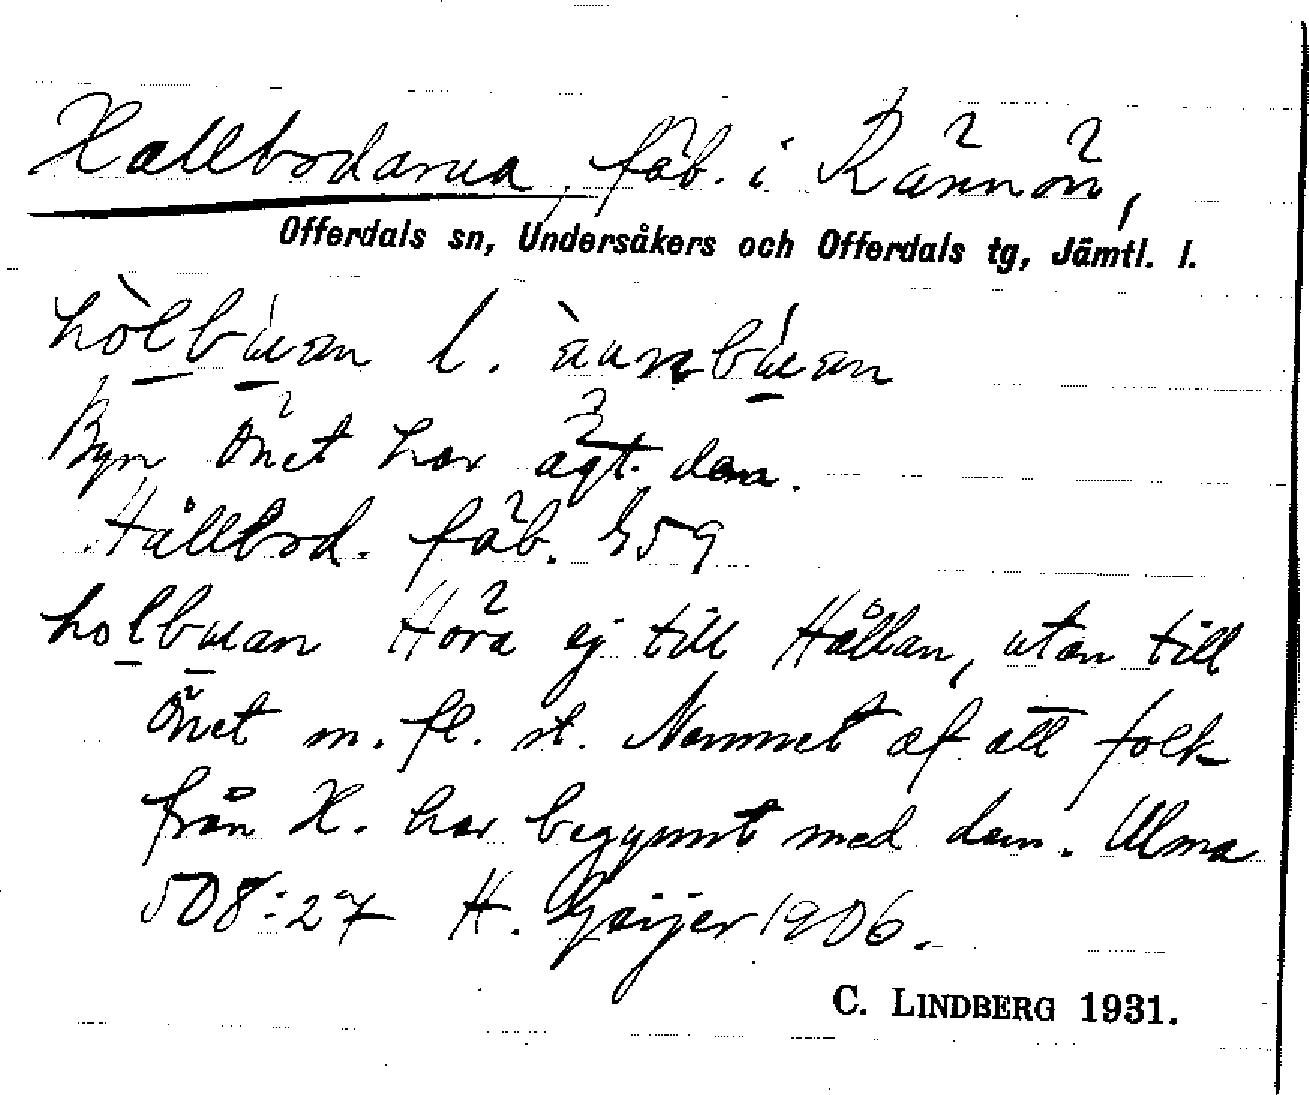 Hallbodarna, fäb. i Rännön,
Offerdals sn, Undersåkers och Offerdals tg, Jämtl. l.
hòlbúan l. àunbúan
Byn Önet har ägt dem.
Hållbod. fäb. G59
holbuan Höra ej till Hållan, utan till
Önet m. fl. st. Namnet af att folk
från H. har begynnt med dem. Ulma
508:27 H. Geijer 1906.
C. LINDBERG 1931.